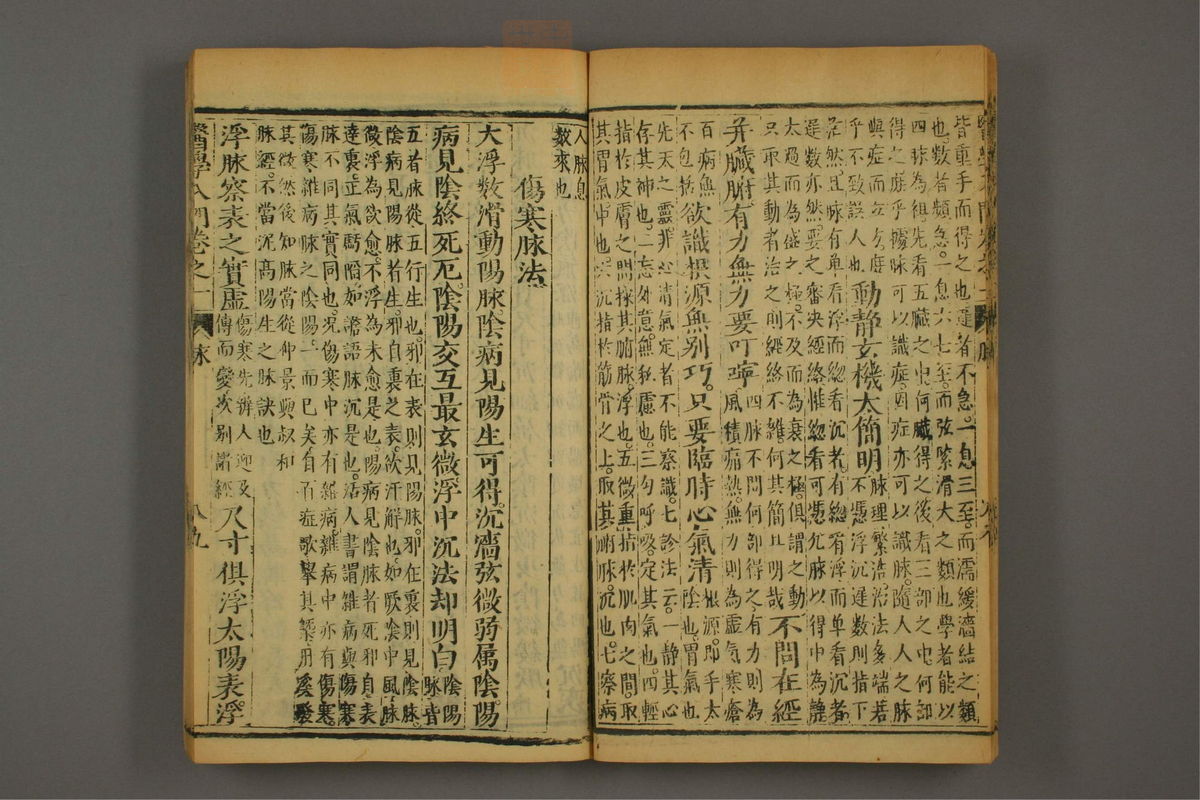 皆重手而得之也遲者不急一息三至而濡緩濇結之類
也數者頻急一息六七至而弦緊滑大之類也學者能以
四脉為祖先看五臟之中何臟得之後看三部之中何部
得之庶乎據脉可以識症因症亦可以識脉隨人人之脉
與症而立方庶
乎不致誤人也動靜玄機太簡明脉理繁浩治法多端若
不憑浮沉遲數則指下
茫然且脉有单看浮而緫看沉者有緫看浮而单看沉者
遲數亦然要之審决經絡惟緫看可憑凢脉以得中為静
太過而為盛之極不及而為衰之極俱謂之動
只取其動者治之則經絡不雜何其簡比明哉不問在經
并臟腑有力無力要叮嚀四脉不問何部得之有力則為
風積痛熱無力則為虛气寒瘡
百病無
不包括欲識根源無别巧只要臨時心氣清根源即手太
陰也胃氣也
先天之靈非心清氣定者不能察識七診法云一静其心
存其神也二忘外意無私慮也三勻呼吸定其氣也四輕
指於皮膚之間探其腑脉浮也五微重指於肌肉之間取
其胃氣中也六沉指於筋骨之上取其臟脉沉也七察病
人脉息
數來也
傷寒脉法
大浮數滑動陽脉陰病見陽生可得沉濇弦微弱属陰陽
病見陰終死厄陰陽交互最玄微浮中沉法却明白陰陽
脉皆
五者脉從五行生也邪在表則見陽脉邪在裏則見陰脉
陰病見陽脉者生邪自裏之表欲汗解也如厥陰中風脉
微浮為欲愈不浮為未愈是也陽病見陰脉者死邪自表
達裏正氣虧陷如譫語脉沉是也活人書謂雜病與傷寒
脉不同其實同也况傷寒中亦有雜病雜病中亦有傷寒
傷寒雜病脉之陰陽一而已矣自百症歌舉其槩用奚發
其微然後知脉當從仲景與叔和
脉經不當沉高陽生之脉訣也
浮脉察表之實虛傷寒先辨人迎及
傳而變次别諸經尺寸俱浮太陽表浮
醫學入門卷之一 脉 八九